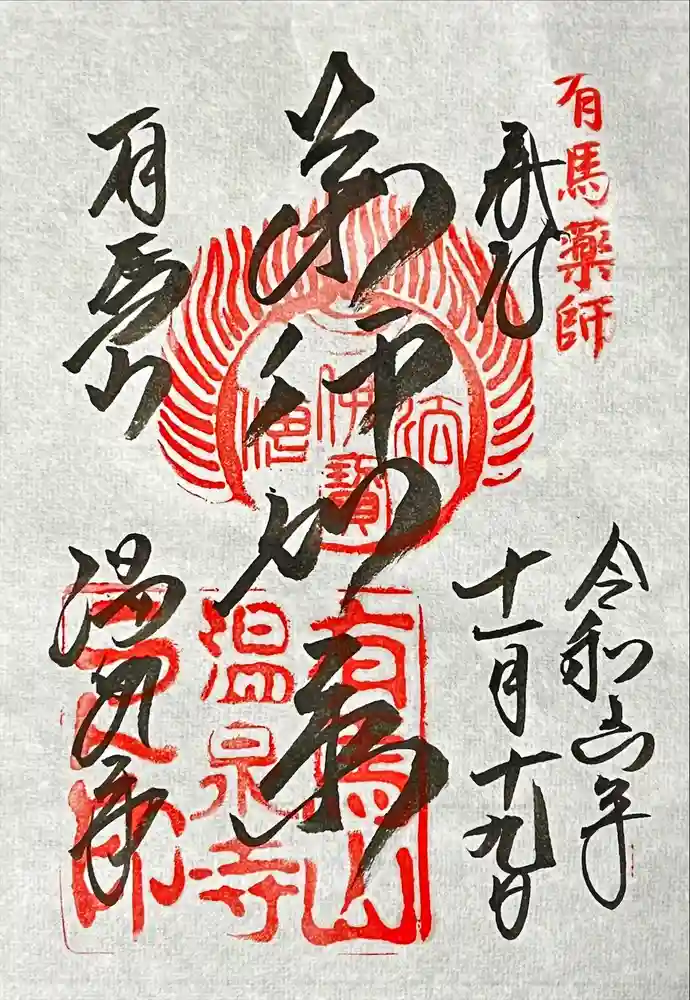 有馬藥師
奉拝
令和六年
十一月十九日
薬師如来
有馬山
温泉寺
有馬山
温泉寺